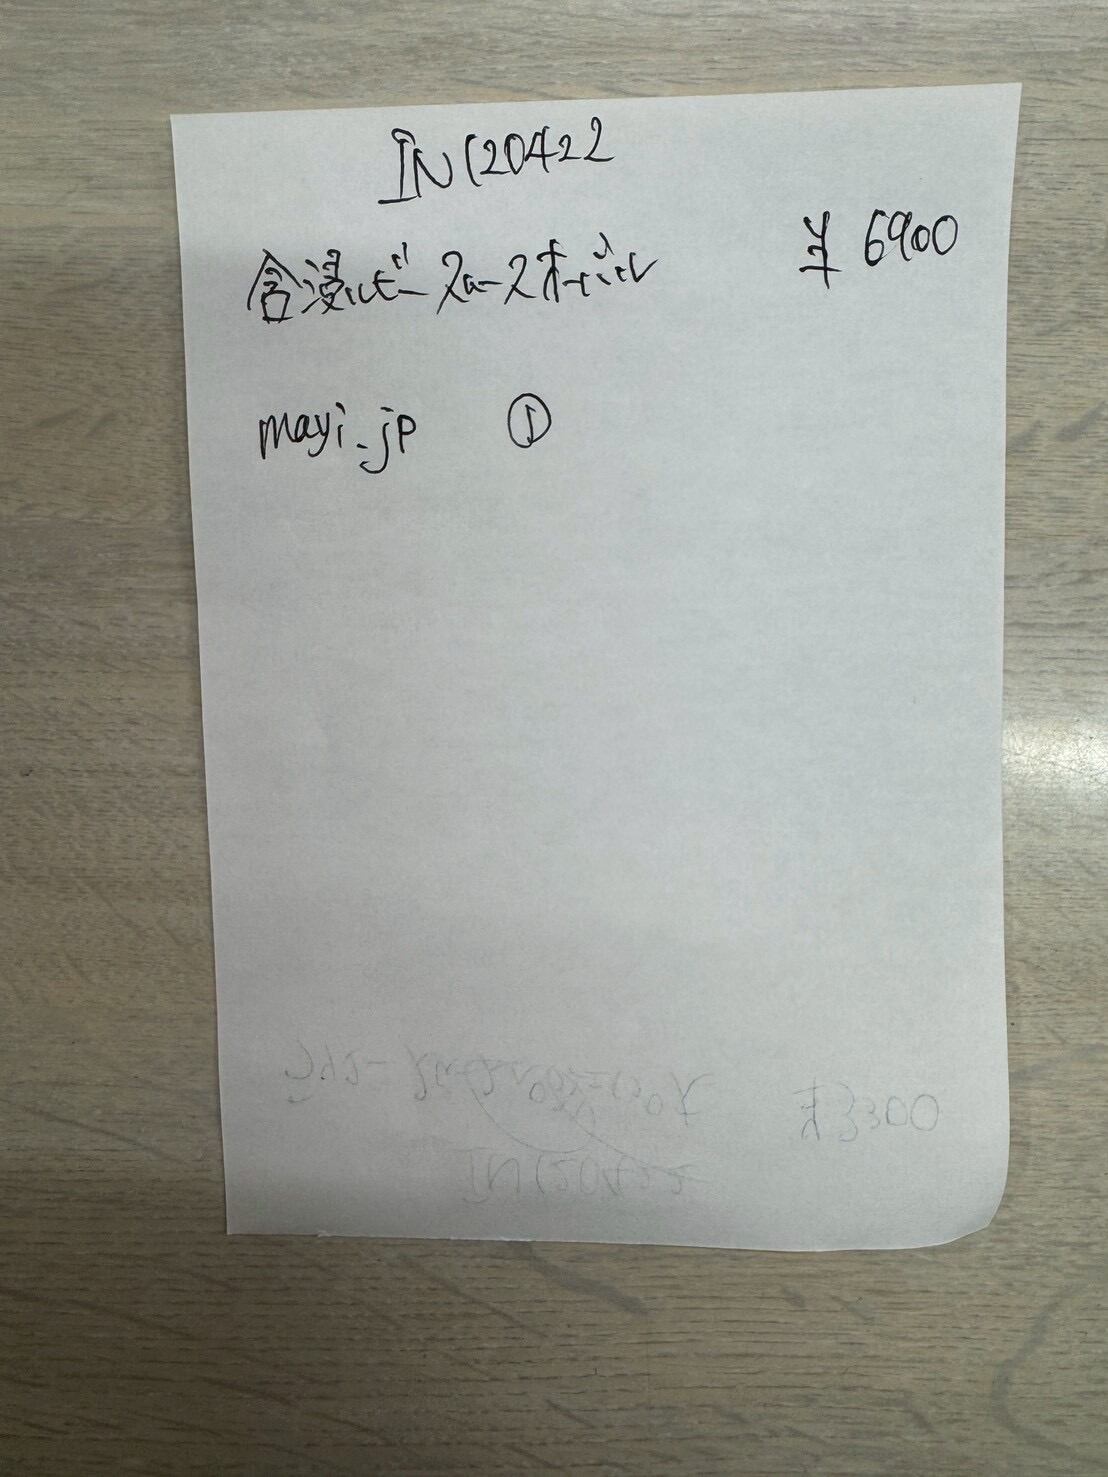 IN120422
含浸ルビースースオーバル ¥6900
mayi.jp ①
¥3300
IN120422